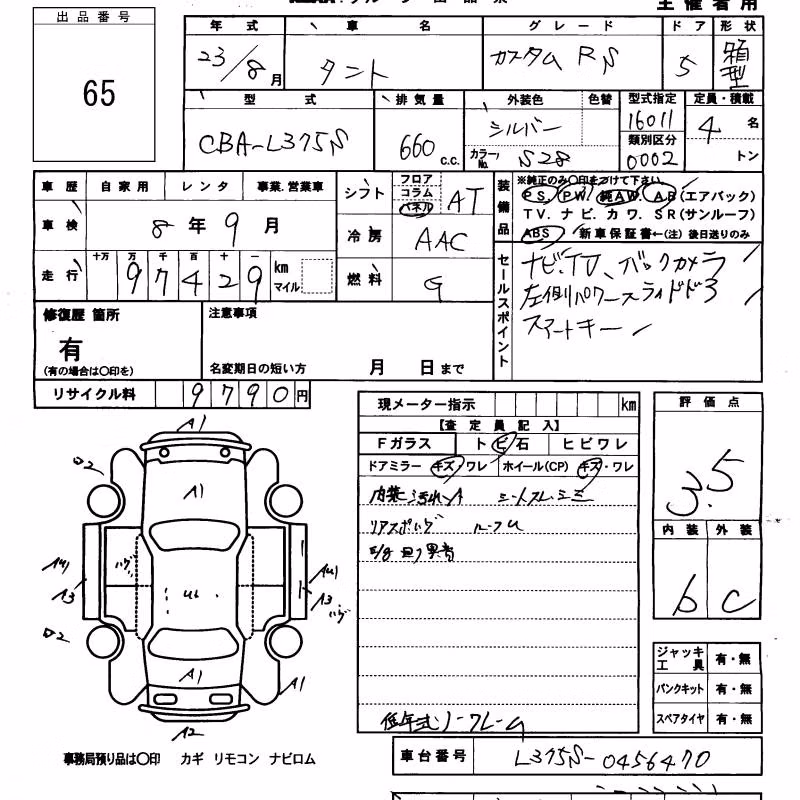 主催者用
出品番号
65
年式 車名 グレード ドア 形状
23/8月 タント カスタム RS 5 箱型
型式 排気量 外装色 色替 型式指定 定員・積載
CBA-L375S 660 c.c. シルバー 16011 4 名
カラーNo. S28 類別区分 0002 トン
車歴 自家用 レンタ 事業.営業車
車検 8年9月
走行 十万 万 千 百 十 一
97429 km マイル
シフト フロア コラム パネル AT
冷房 AAC
燃料 G
装備品 ※純正のみ〇印をつけて下さい。
PS. PW. 純AW. A.B(エアバック)
TV. ナビ. カワ. SR(サンルーフ)
ABS 新車保証書←(注) 後日送りのみ
セールスポイント
ナビ、TV、バックカメラ
左側パワースライドドア
スマートキー
修復歴 箇所
有
(有の場合は〇印を)
注意事項
名変期日の短い方 月 日まで
リサイクル料 9790円
現メーター指示 km
【査定員記入】
Fガラス トビ石 ヒビワレ
ドアミラー キズ・ワレ ホイール(CP) キズ・ワレ
内装汚れ シートスレ
リアスポハゲ ルーフU
低年式ノークレーム
評価点
3.5
内装 外装
b C
ジャッキ工具 有・無
パンクキット 有・無
スペアタイヤ 有・無
A1
A1
ハゲ
U6
A3
A3
ハゲ
A1
A1
A2
事務局預り品は〇印 カギ リモコン ナビロム
車台番号 L375S-0456470